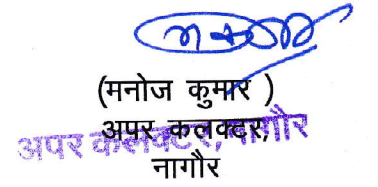 (मनोज कुमार )
अपर कलक्टर,
अपर कलक्टर, नागौर
नागौर